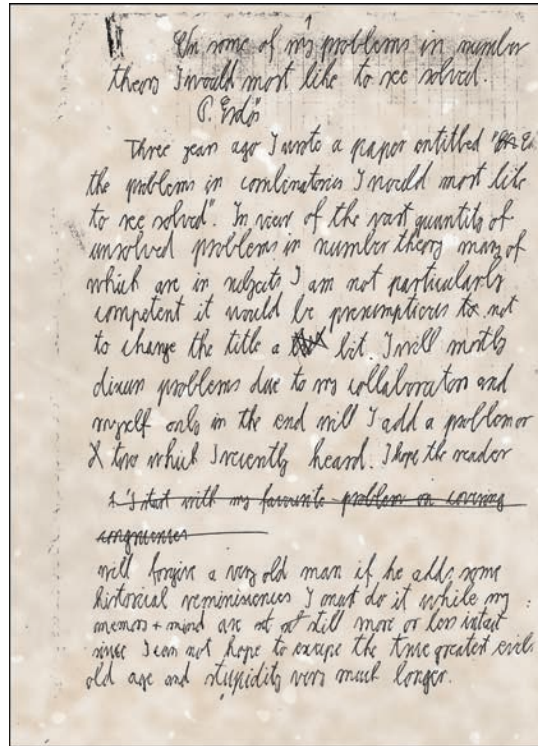 On some of my problems in number
theory I would most like to see solved.
P. Erdős
Three year ago I wrote a paper entitled "
the problems in combinatorics I would most like
to see solved". In view of the vast quantity of
unsolved problems in number theory many of
which are in subjects I am not particularly
competent it would be presumptious to not
to change the title a bit. I will mostly
discuss problems due to my collaborators and
myself only in the end will I add a problem or
two which I recently heard. I hope the reader
I start with my favourite problem on covering
congruences
will forgive a very old man if he adds some
historical reminiscences I must do it while my
memory + mind are still more or less intact
since I can not hope to escape the two greatest evils
old age and stupidity very much longer.